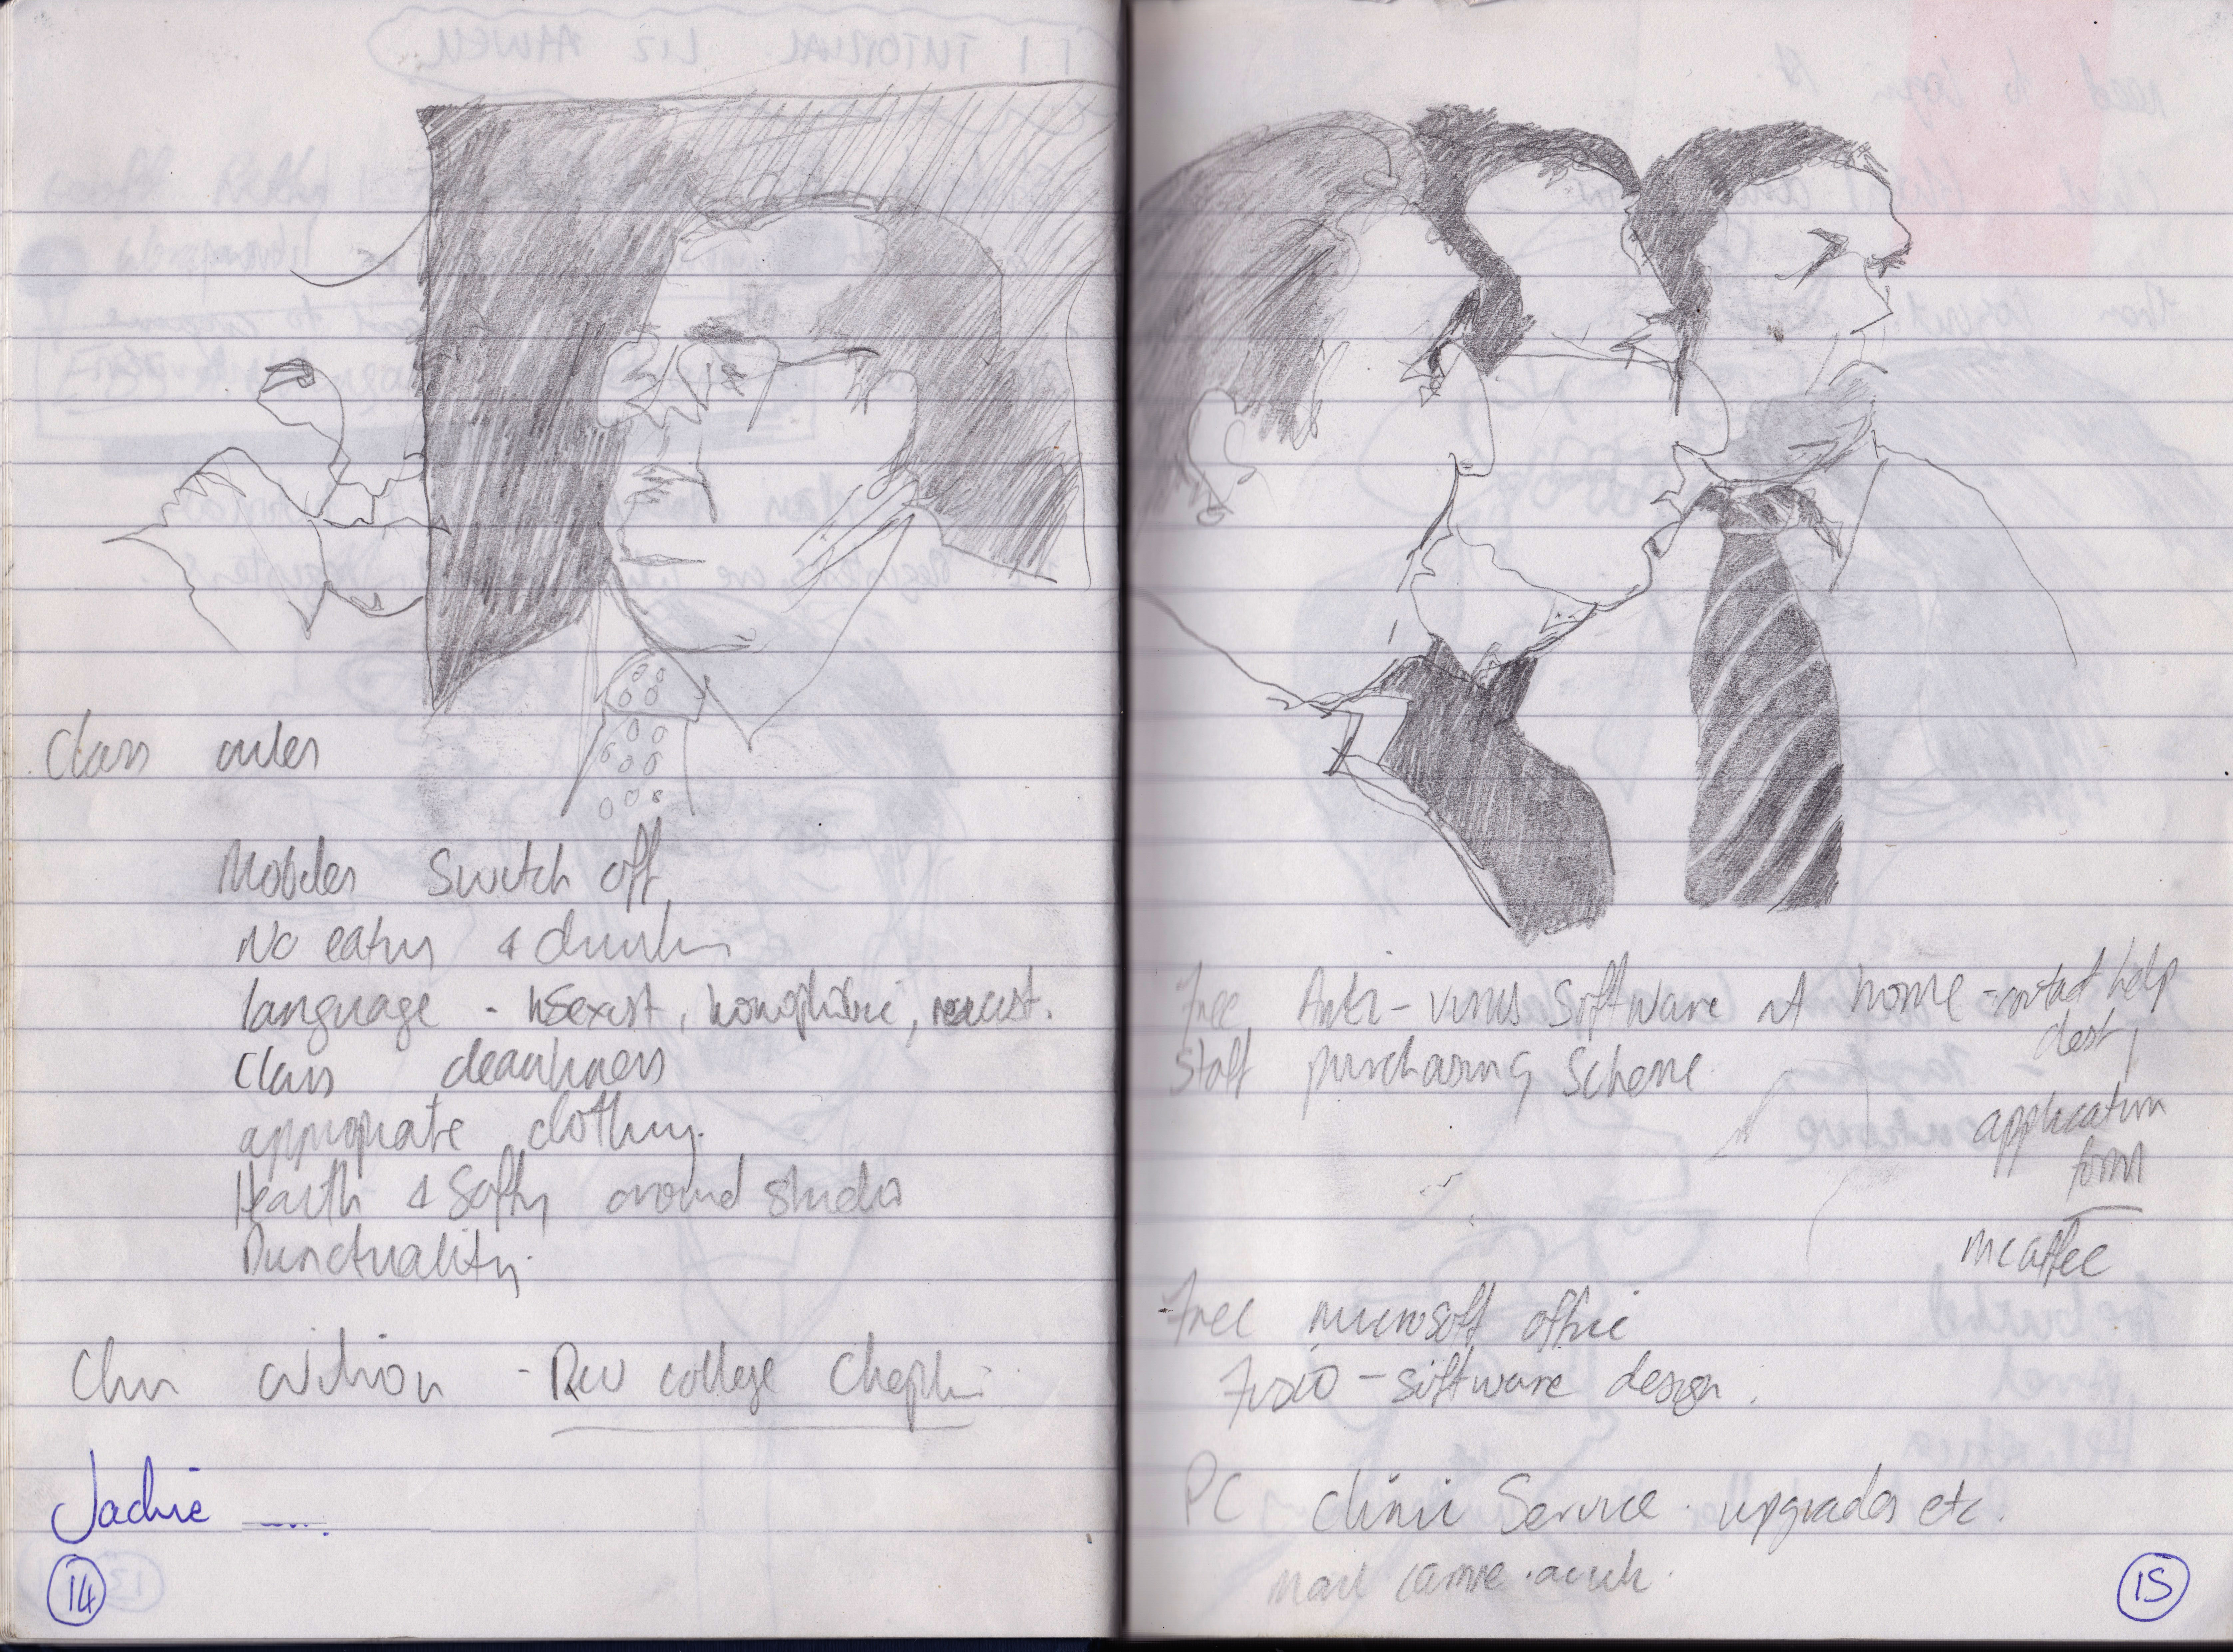 Class rules
Mobiles switch off
No eating & drinking
language - sexist, homophobic, racist.
Class cleanliness
appropriate clothing.
Health & Safty around studio
Punctuality.
college
Jackie
14
Free Anti-virus software at home - contact help
desk
Staff purchasing scheme
application
form
mcaffee
Free microsoft office
software design.
PC clinic service. upgrades etc.
15